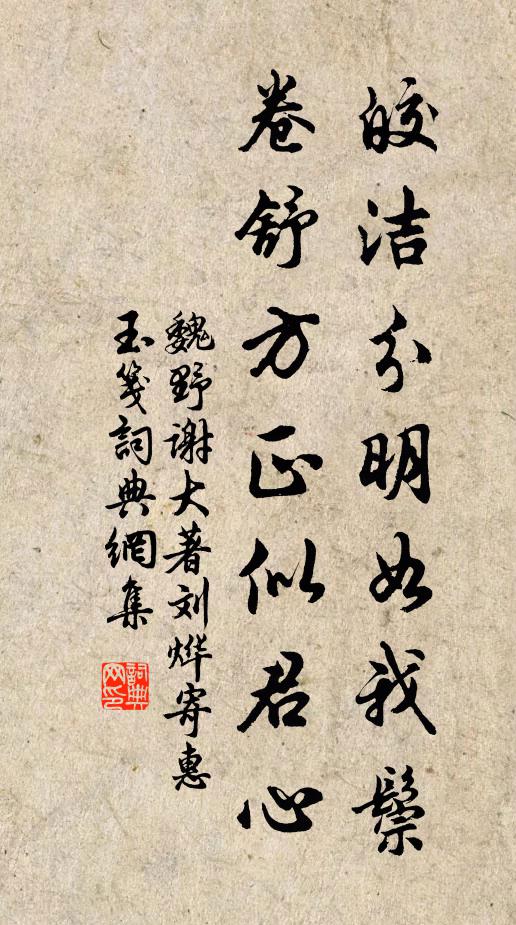 皎洁分明如我鬓
卷舒方正似君心
魏野谢大著刘烨寄惠
玉笺詞典網集
詞典网印